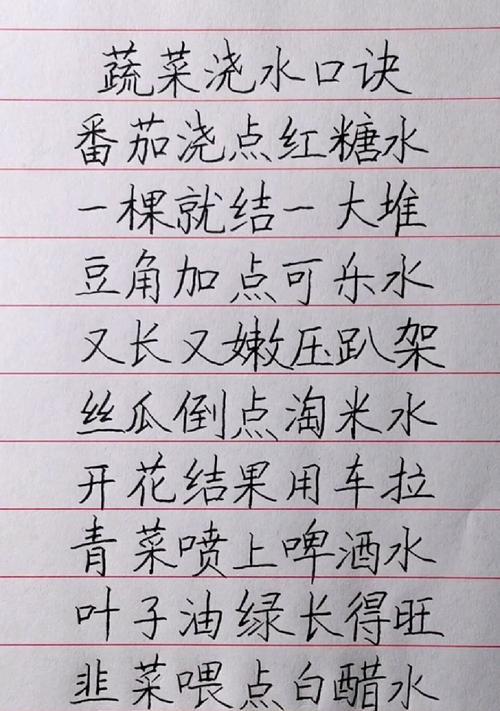 蔬菜浇水口诀
番茄浇点红糖水
一棵就结一大堆
豆角加点可乐水
又长又嫩压趴架
丝瓜倒点淘米水
开花结果用车拉
青菜喷上啤酒水
叶子油绿长得旺
韭菜喂点白醋水